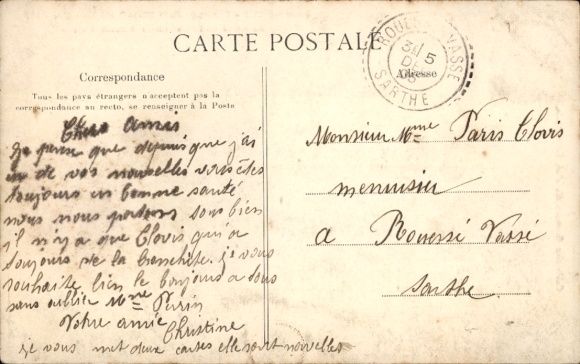 CARTE POSTALE
Correspondance
Tous les pays étrangers n'acceptent pas la
correspondance au recto, se renseigner à la Poste
Chers amis
Je pense que depuis que j'ai
eu de vos nouvelles vous êtes
toujours en bonne santé
nous nous portons tous bien
il n'y a que Clovis qui a
toujours de la bronchite. je vous
souhaite bien le bonjour a tous
sans oublier Mme
Votre amie
Christine
je vous met deux cartes elle sont nouvelles
ROUEZ VASSÉ
5
SARTHE
Adresse
Monsieur Mme Paris Clovis
menuisier
a Rouessé Vassé
Sarthe